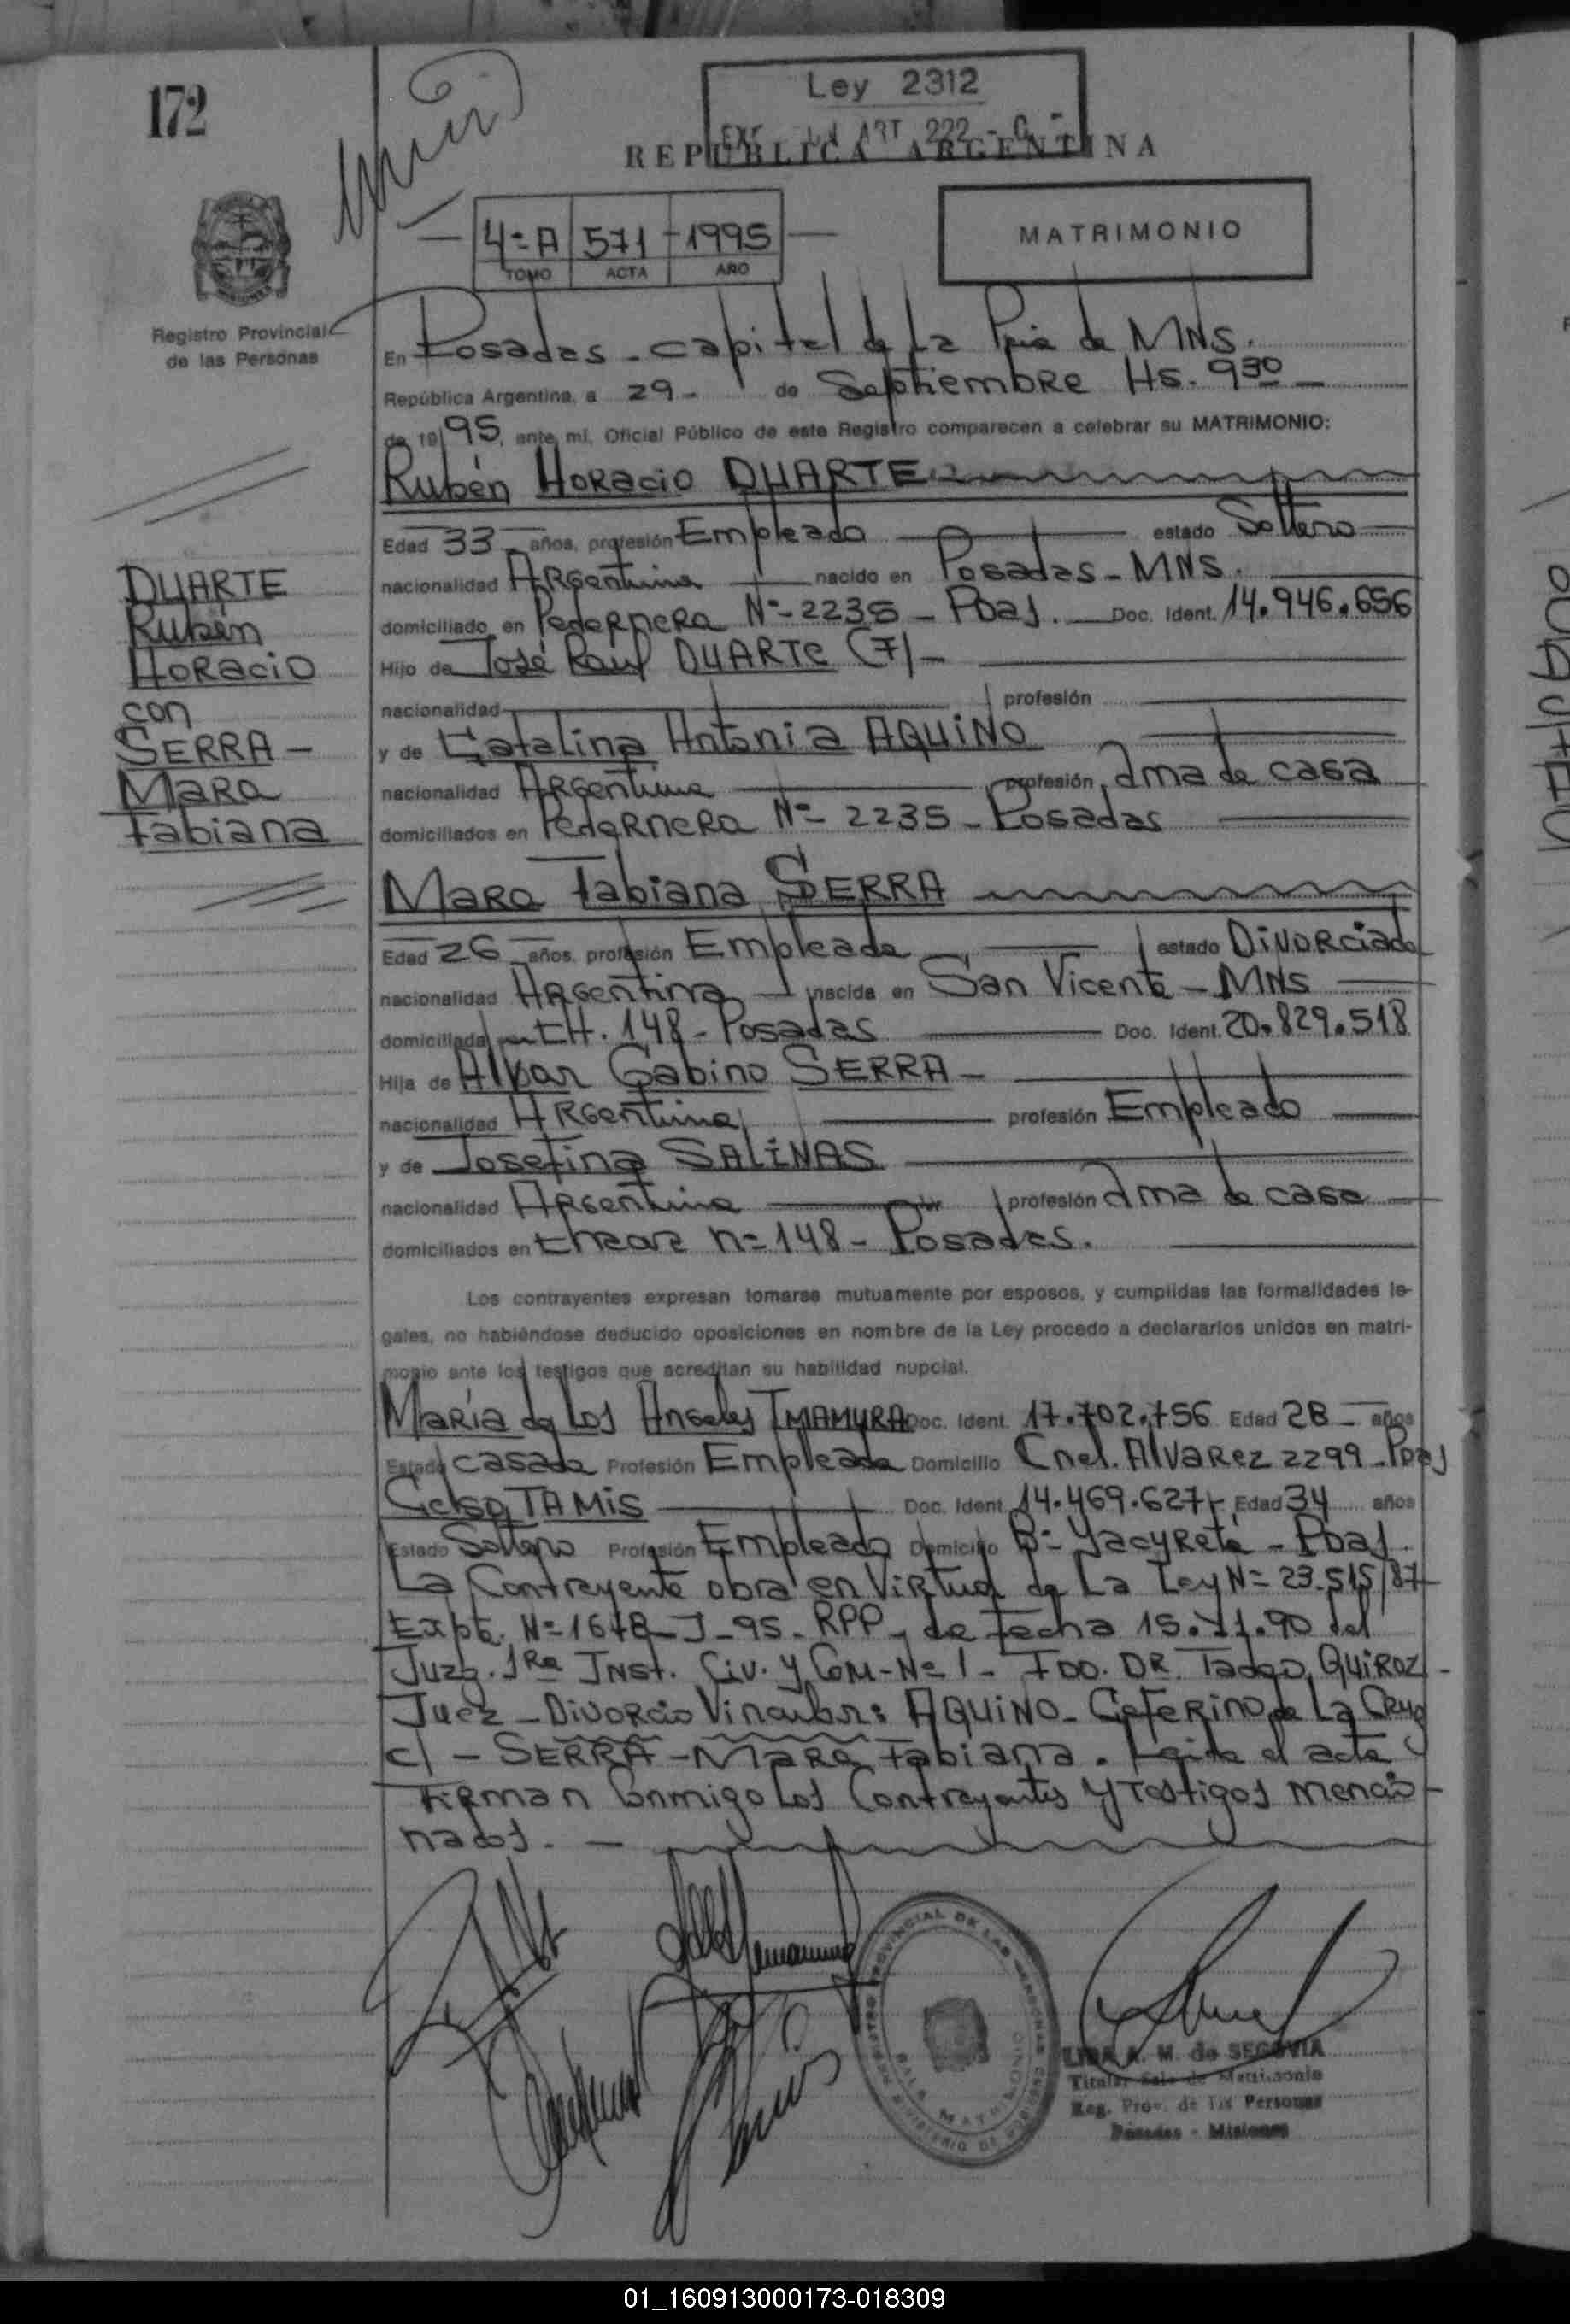 172
Ley 2312
ART 222
REPUBLICA ARGENTINA
4º A 571 1995
TOMO ACTA AÑO
MATRIMONIO
Registro Provincial
de las Personas
En Posadas - capital de La Pcia de MNS.
República Argentina, a 29 - de Septiembre Hs. 930
de 1995, ante mí, Oficial Público de este Registro comparecen a celebrar su MATRIMONIO:
Rubén Horacio DUARTE
Edad 33 - años, profesión Empleado estado Soltero
nacionalidad Argentina nacido en Posadas - MNS.
domiciliado en Pedernera Nº 2235 - Pdas. Doc. Ident. 14.946.656
Hijo de José Raul DUARTE (7) -
nacionalidad profesión
y de Catalina Antonia AQUINO
nacionalidad Argentina profesión Ama de casa
domiciliados en Pedernera Nº 2235 - Posadas
DUARTE
Rubén
Horacio
con
SERRA -
Mara
Fabiana
Mara Fabiana SERRA
Edad 26 - años, profesión Empleada estado Divorciada
nacionalidad Argentina nacida en San Vicente - MNS
domiciliada CH. 148 - Posadas Doc. Ident. 20.829.518
Hija de Gabino SERRA -
nacionalidad Argentina profesión Empleado
y de Josefina SALINAS
nacionalidad Argentina profesión Ama de casa
domiciliados en nº 148 - Posadas.
Los contrayentes expresan tomarse mutuamente por esposos, y cumplidas las formalidades le-
gales, no habiéndose deducido oposiciones en nombre de la Ley procedo a declararlos unidos en matri-
monio ante los testigos que acreditan su habilidad nupcial.
María de Los Angeles IMAMURA Doc. Ident. 17.702.756 Edad 28 - años
Estado casada Profesión Empleada Domicilio Cnel. Alvarez 2299 - Pdas
Celso TAMIS Doc. Ident. 14.469.627 Edad 34 años
Estado Soltero Profesión Empleado Domicilio Bº Yacyretá - Pdas.
La Contrayente obra en Virtud de La Ley Nº 23.515/87
Expte. Nº 1678 - J - 95 - RPP - de Fecha 15.11.90 del
Juzg. 1Ra Inst. Civ. y Com - Nº 1 - FDO. DR. Tadeo QUIROZ -
Juez - Divorcio Vincular: AQUINO - Ceferino de La Cruz
c/ - SERRA - Mara Fabiana. Leida el acta
Firman Conmigo Los Contrayentes y Testigos mencio-
nados. -
REGISTRO PROVINCIAL DE LAS PERSONAS
SALA MATRIMONIO
MINISTERIO DE GOBIERNO
A. M. de SEGOVIA
Titular Sala de Matrimonio
Reg. Prov. de las Personas
Posadas - Misiones
01_160913000173-018309